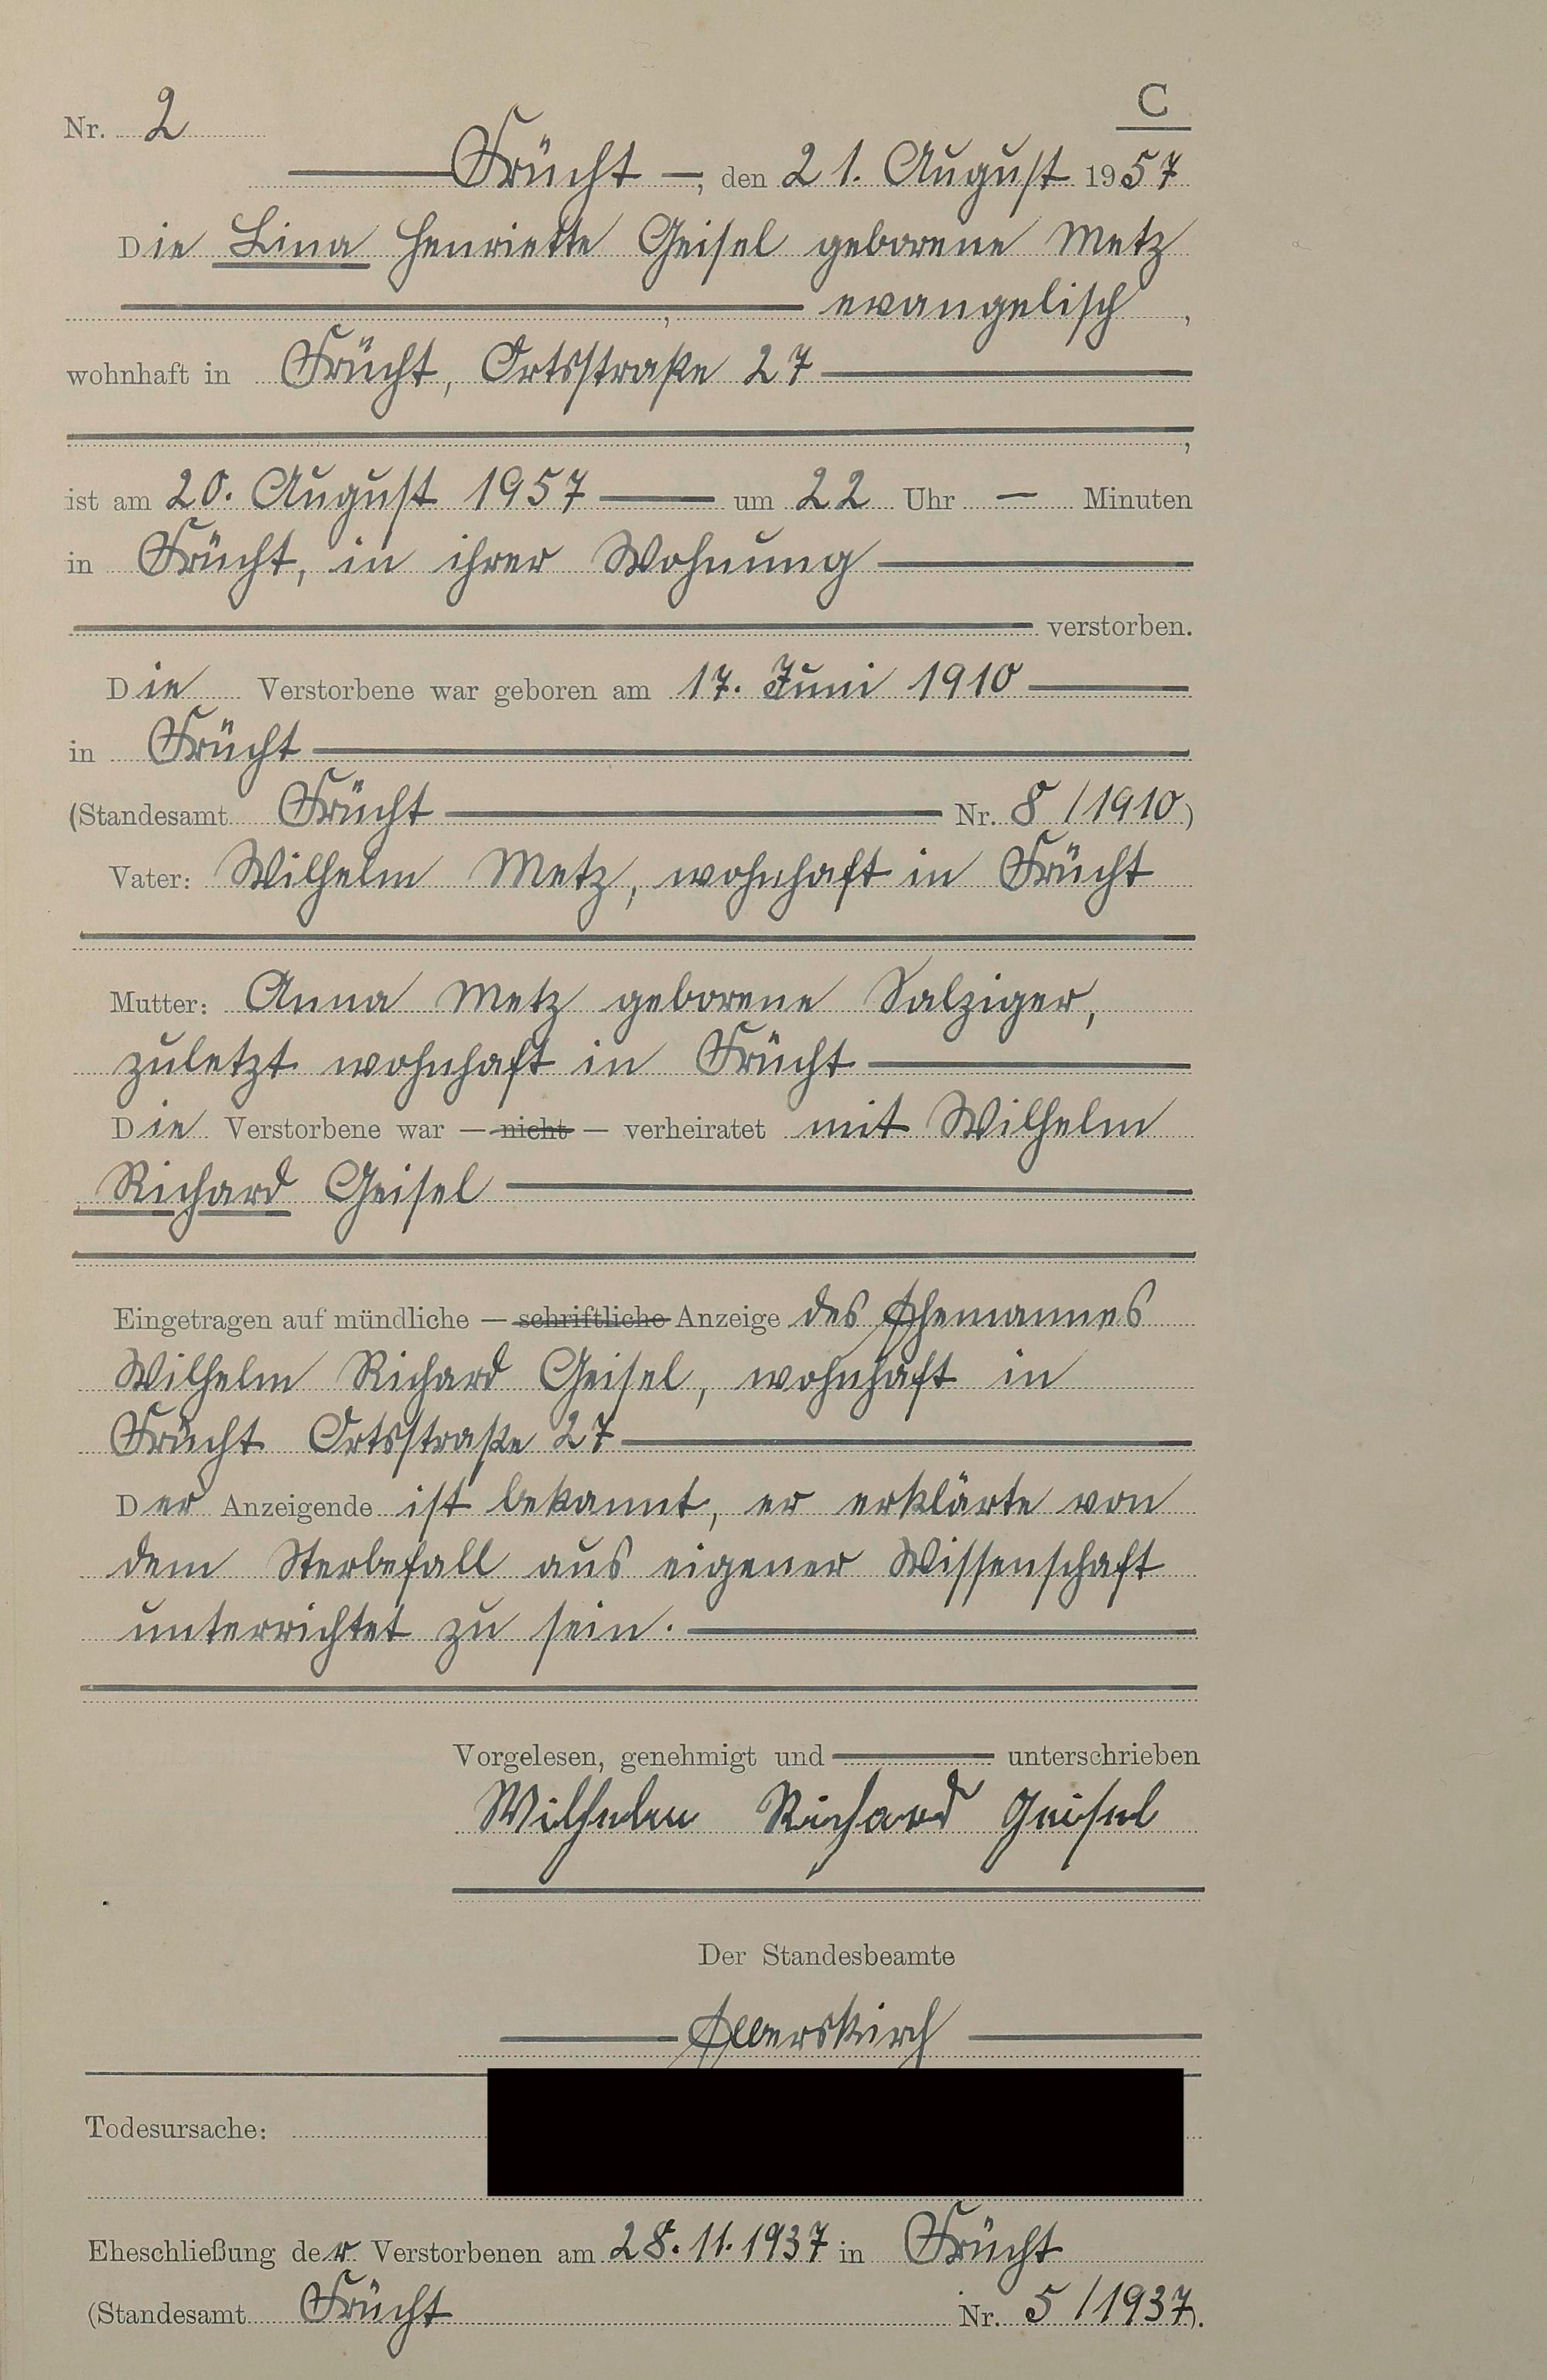 C
Nr. 2
Frücht, den 21. August 1957
Die Lina Henriette Geisel geborene Metz
, evangelisch,
wohnhaft in Frücht, Ortsstraße 27
,
ist am 20. August 1957 um 22 Uhr — Minuten
in Frücht, in ihrer Wohnung
verstorben.
Die Verstorbene war geboren am 17. Juni 1910
in Frücht
(Standesamt Frücht Nr. 8/1910)
Vater: Wilhelm Metz, wohnhaft in Frücht
Mutter: Anna Metz geborene Salziger,
zuletzt wohnhaft in Frücht
Die Verstorbene war — nicht — verheiratet mit Wilhelm
Richard Geisel
Eingetragen auf mündliche — schriftliche Anzeige des Ehemannes
Wilhelm Richard Geisel, wohnhaft in
Frücht Ortsstraße 27
Der Anzeigende ist bekannt, er erklärte von
dem Sterbefall aus eigener Wissenschaft
unterrichtet zu sein.
Vorgelesen, genehmigt und unterschrieben
Wilhelm Richard Geisel
Der Standesbeamte
Todesursache:
Eheschließung der Verstorbenen am 28.11.1937 in Frücht
(Standesamt Frücht Nr. 5/1937).